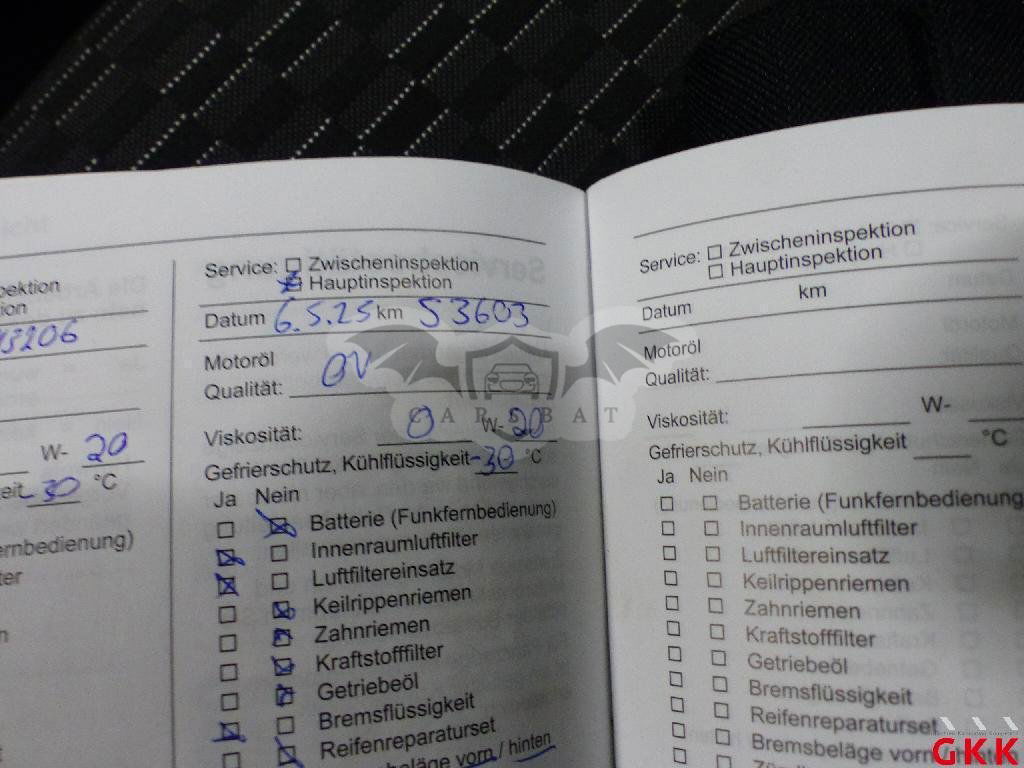 pektion
ion
13206
W- 20
eit -30 °C
ernbedienung)
ter
n
Service: Zwischeninspektion
Hauptinspektion
Datum 6.5.25 km 53603
Motoröl
Qualität: OV
Viskosität: 0 W- 20
Gefrierschutz, Kühlflüssigkeit -30 °C
Ja Nein
Batterie (Funkfernbedienung)
Innenraumluftfilter
Luftfiltereinsatz
Keilrippenriemen
Zahnriemen
Kraftstofffilter
Getriebeöl
Bremsflüssigkeit
Reifenreparaturset
beläge vorn / hinten
Service: Zwischeninspektion
Hauptinspektion
Datum km
Motoröl
Qualität:
Viskosität: W-
Gefrierschutz, Kühlflüssigkeit °C
Ja Nein
Batterie (Funkfernbedienung
Innenraumluftfilter
Luftfiltereinsatz
Keilrippenriemen
Zahnriemen
Kraftstofffilter
Getriebeöl
Bremsflüssigkeit
Reifenreparaturset
Bremsbeläge vorn / hinten
CARSBAT
GKK